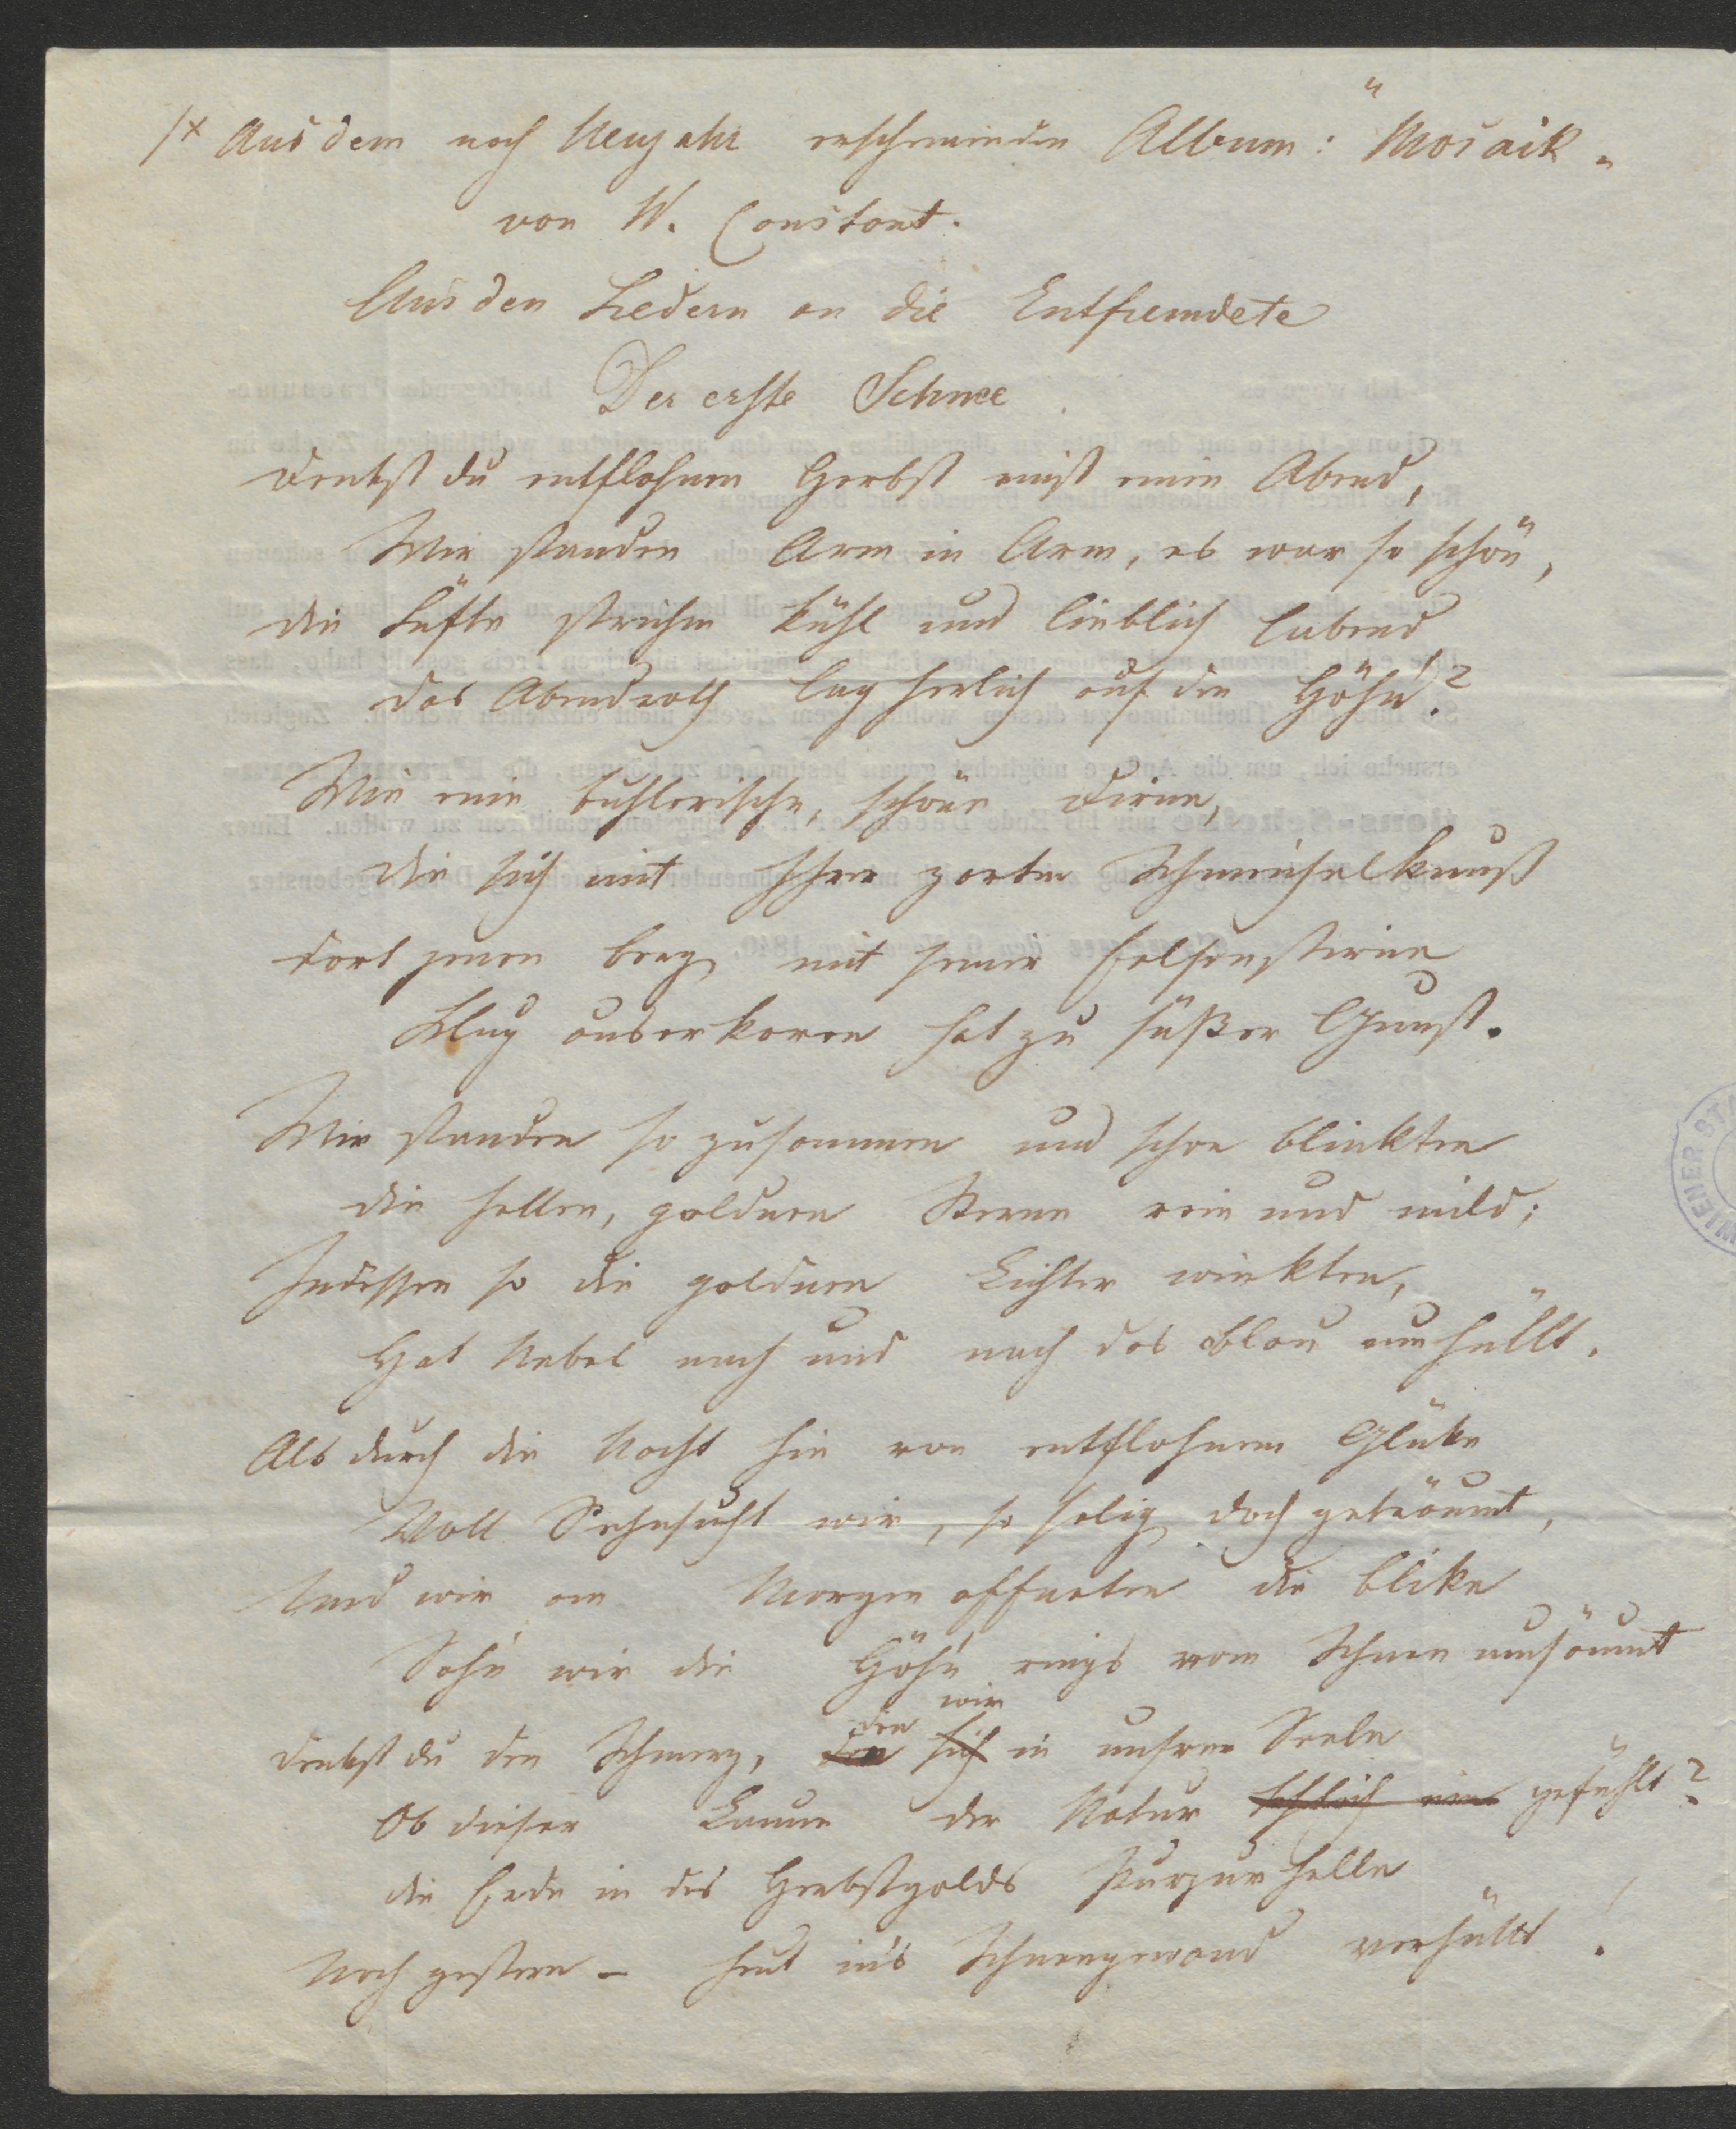 /x Aus dem nach Neujahr erscheinenden Album: "Mosaik"
von W. Constant.
Aus den Liedern an die Entfremdete
Der erste Schnee
Denkst du entflohnen Herbst einst einen Abend,
Wir standen Arm in Arm, es war so schön,
die Lüfte strichen kühl und lieblich labend
das Abendroth lag herlich auf den Höh'n?
Wie eine buhlerische, schöne Dirne,
die sich mit Ihrer zarten Schmeichelkunst
dort jenen Berg mit seiner Felsenstirne
Klug auserkoren hat zu süßer Gunst.
Wir standen so zusammen und schon blinkten
die hellen, goldnen Sterne rein und mild;
Indessen so die goldnen Lichter winkten,
Hat Nebel nach und nach das Blau umhüllt.
Als durch die Nacht hin von entflohnem Glüke
Voll Sehnsucht wir, so selig doch geträumt,
Und wir am Morgen öffneten die Blike
Sah'n wir die Höh'n rings vom Schnee umsäumt
wir
den
Denkst du den Schmerz, den sich in unsrer Seele
Ob dieser Laune der Natur gefühlt?
die Erde in des Herbstgolds Purpurhelle
Noch gestern – heut in's Schneegewand verhüllt!
WIENER STA